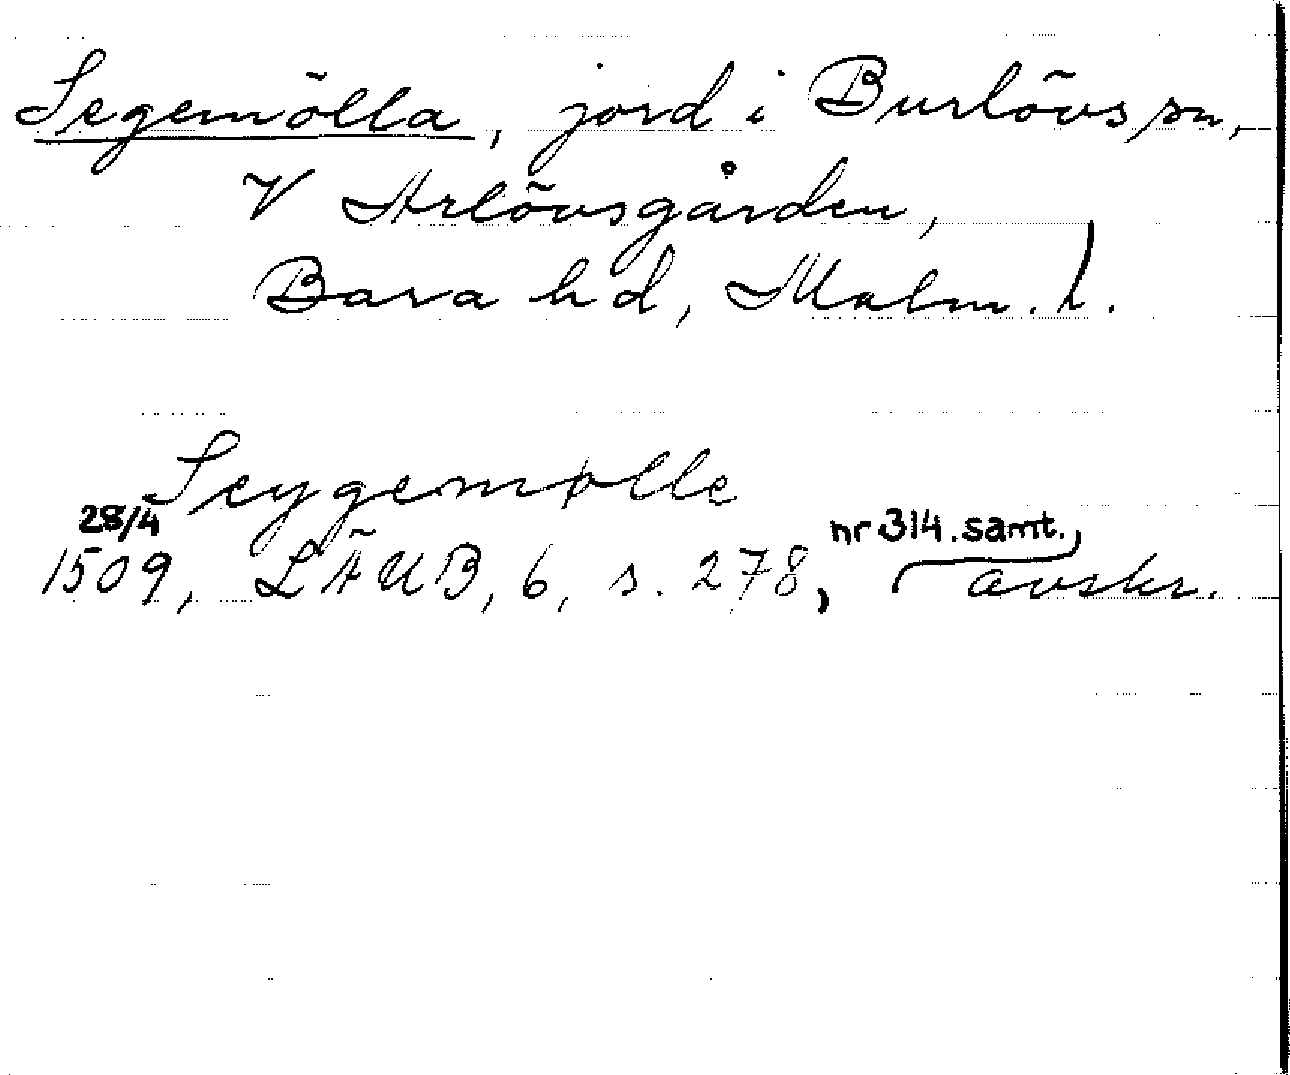 Segemölla, jord i Burlövs sn,
V Arlövsgården,
Bara hd, Malm. l.
Seygemølle
28/4 nr 314. samt.
1509, LÄUB, 6, s. 278, avskr.